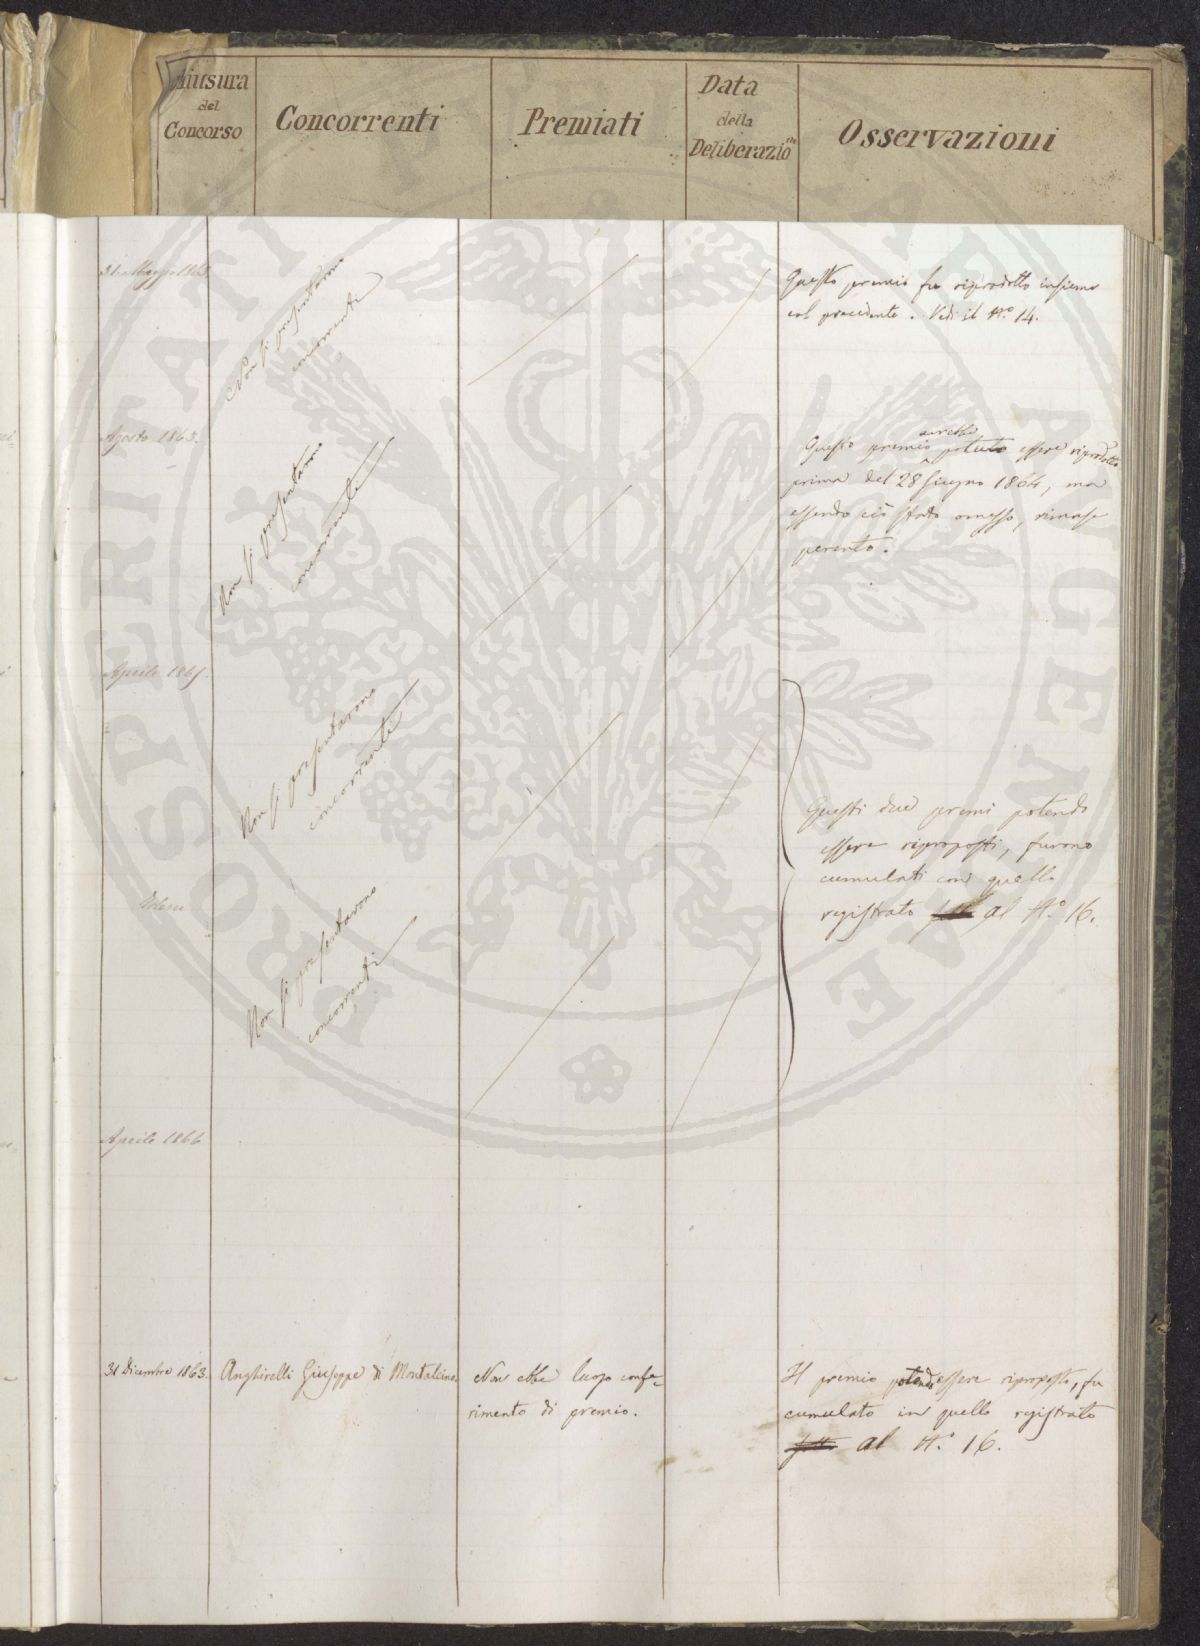 Chiusura
del
Concorso
Concorrenti
Premiati
Data
della
Deliberazio.ne
Osservazioni
31. Maggio 1863
Non si presentarono
concorrenti
Questo premio fu riprodotto insieme
col precedente. Vedi il N.º 14.
Agosto 1863.
Non si presentarono
concorrenti
Questo premio avrebbe potuto essere riprodotto
prima del 28 Giugno 1864, ma
essendo ciò stato omesso, rimase
perento.
Aprile 1865.
Non si presentarono
concorrenti
Questi due premi potendo
essere riproposti, furono
cumulati con quello
registrato al N.º 16.
Idem
Non si presentarono
concorrenti
Aprile 1866
31 Dicembre 1863.
Anghirelli Giuseppe di Montalcino.
Non ebbe luogo confe-
rimento di premio.
Il premio potendo essere riproposto, fu
cumulato in quello registrato
al N.º 16.
PROSPERITATI